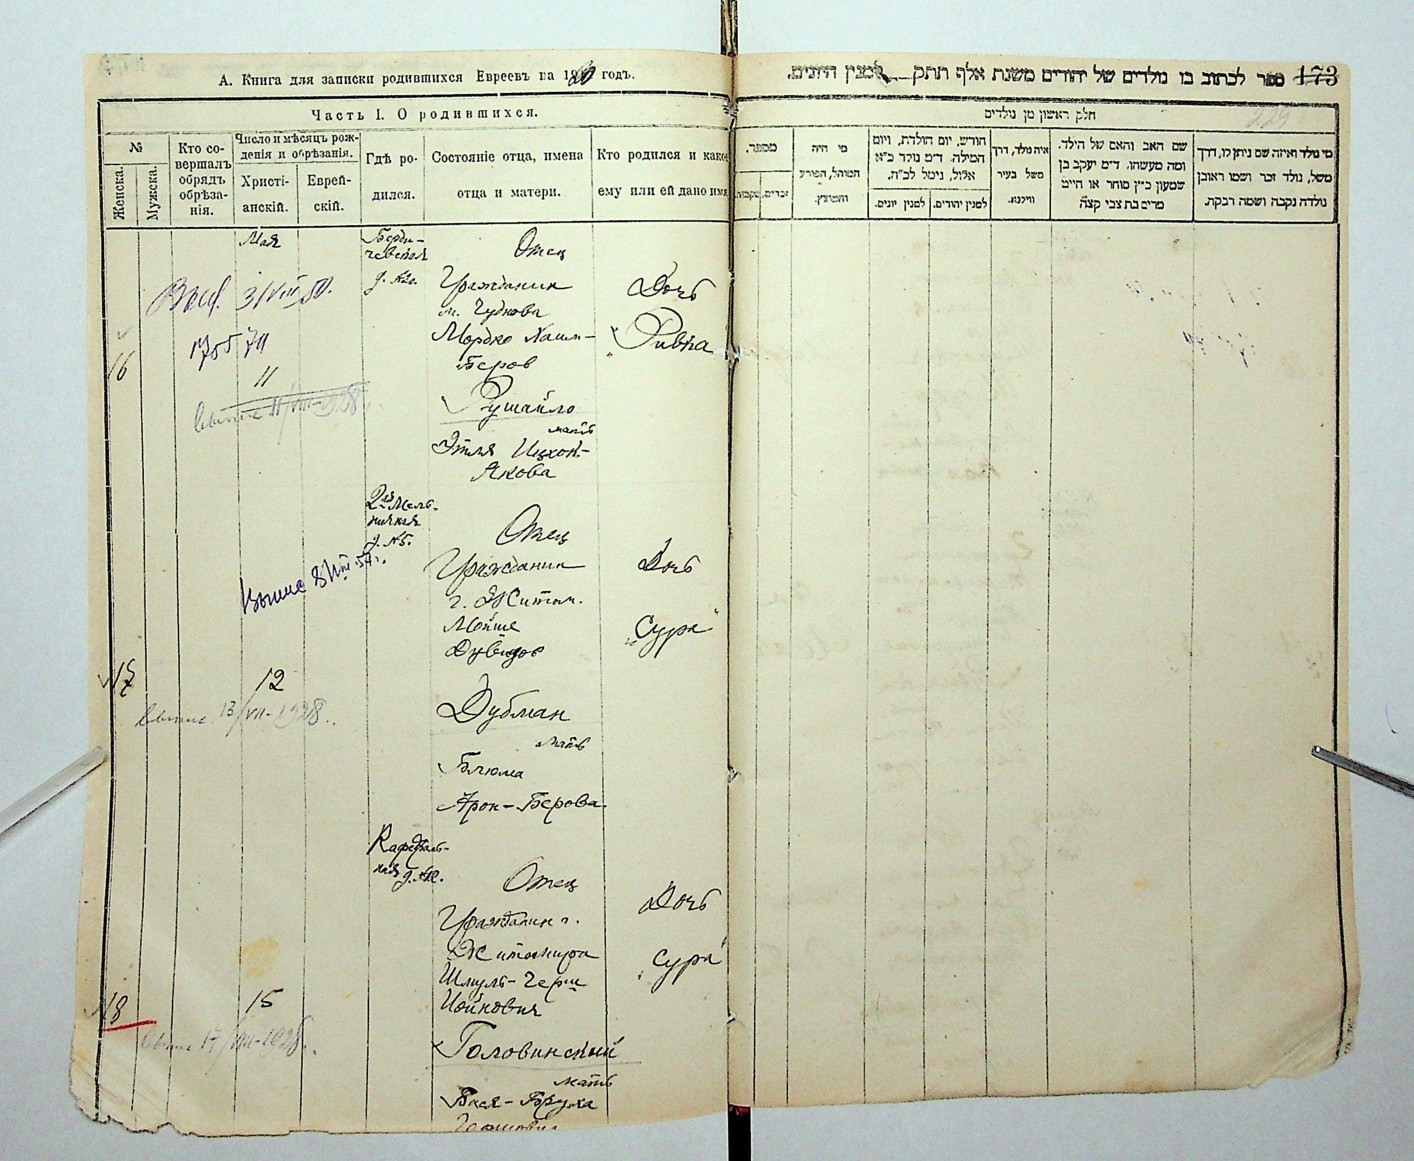 А. Книга для записки родившихся Евреевъ на 1920 годъ.
Часть I. О родившихся.
№
Женска.
Мужска.
Кто со-
вершалъ
обрядъ
обрѣза-
нія.
Число и мѣсяцъ рож-
денія и обрѣзанія.
Христі-
анскій.
Еврей-
скій.
Гдѣ ро-
дился.
Состояніе отца, имена
отца и матери.
Кто родился и какое
ему или ей дано имя
Мая
Берди-
чевская
Отец
Гражданин
м. Чуднова
Мордко Хаим-
Беров
Рушайло
мать
Этля Ицхок-
Якова
Дочь
"Ривка
16
11
2ая Мель-
ничная
д. №5.
Отец
Гражданин
г. Житом.
Мойше
Дувидов
Дубман
мать
Блюма
Арон-Берова
Дочь
"Сура"
17
12
13/VII-1928
Кафедраль-
ная
Отец
Гражданин г.
Житомира
Шмуль-Герш
Иойнович
Головинский
мать
Бася-Бруха
Дочь
"Сура"
18
15
17/VII-1928
173
ספר לכתוב בו נולדים של יהודים משנת אלף תתק למנין היונים.
חלק ראשון מן נולדים
מספר.
זכרים.
נקבות.
מי היה
המוהל, הפורע
והמוצץ.
חודש, יום הולדת, ויום
המילה. ד״מ נולד כ״א
אלול, נימל לכ״ח.
למנין יונים.
למנין יהודים.
איה נולד, דרך
משל בעיר
ווילנא.
שם האב והאם של הילד.
ומה מעשהו. ד״מ יעקב בן
שמעון כ״ץ סוחר או חייט
מרים בת צבי קצה
מי נולד ואיזה שם ניתן לו, דרך
משל, נולד זכר ושמו ראובן
נולדה נקבה ושמה רבקה.